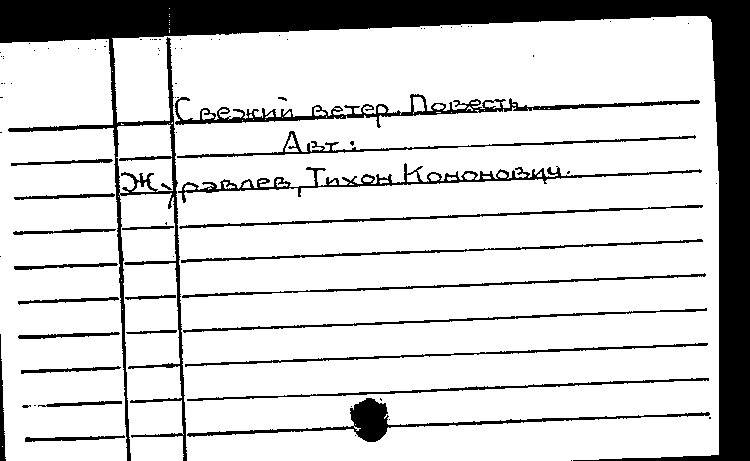 Свежий ветер. Повесть.
Авт:
Журавлев, Тихон Кононович.